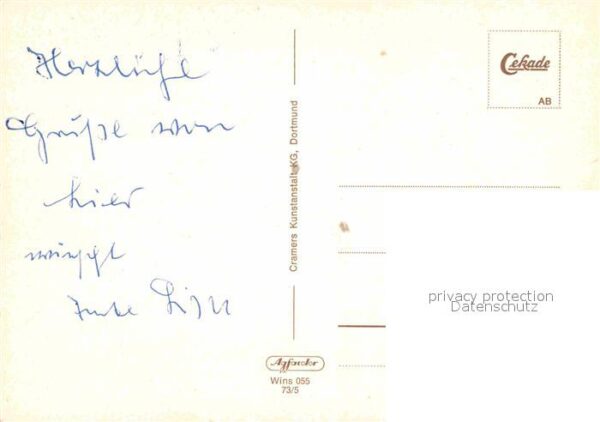 Herzliche
Grüße von
hier
Cekade
AB
Cramers Kunstanstalt KG, Dortmund
privacy protection
Datenschutz
Agfacolor
Wins 055
73/5